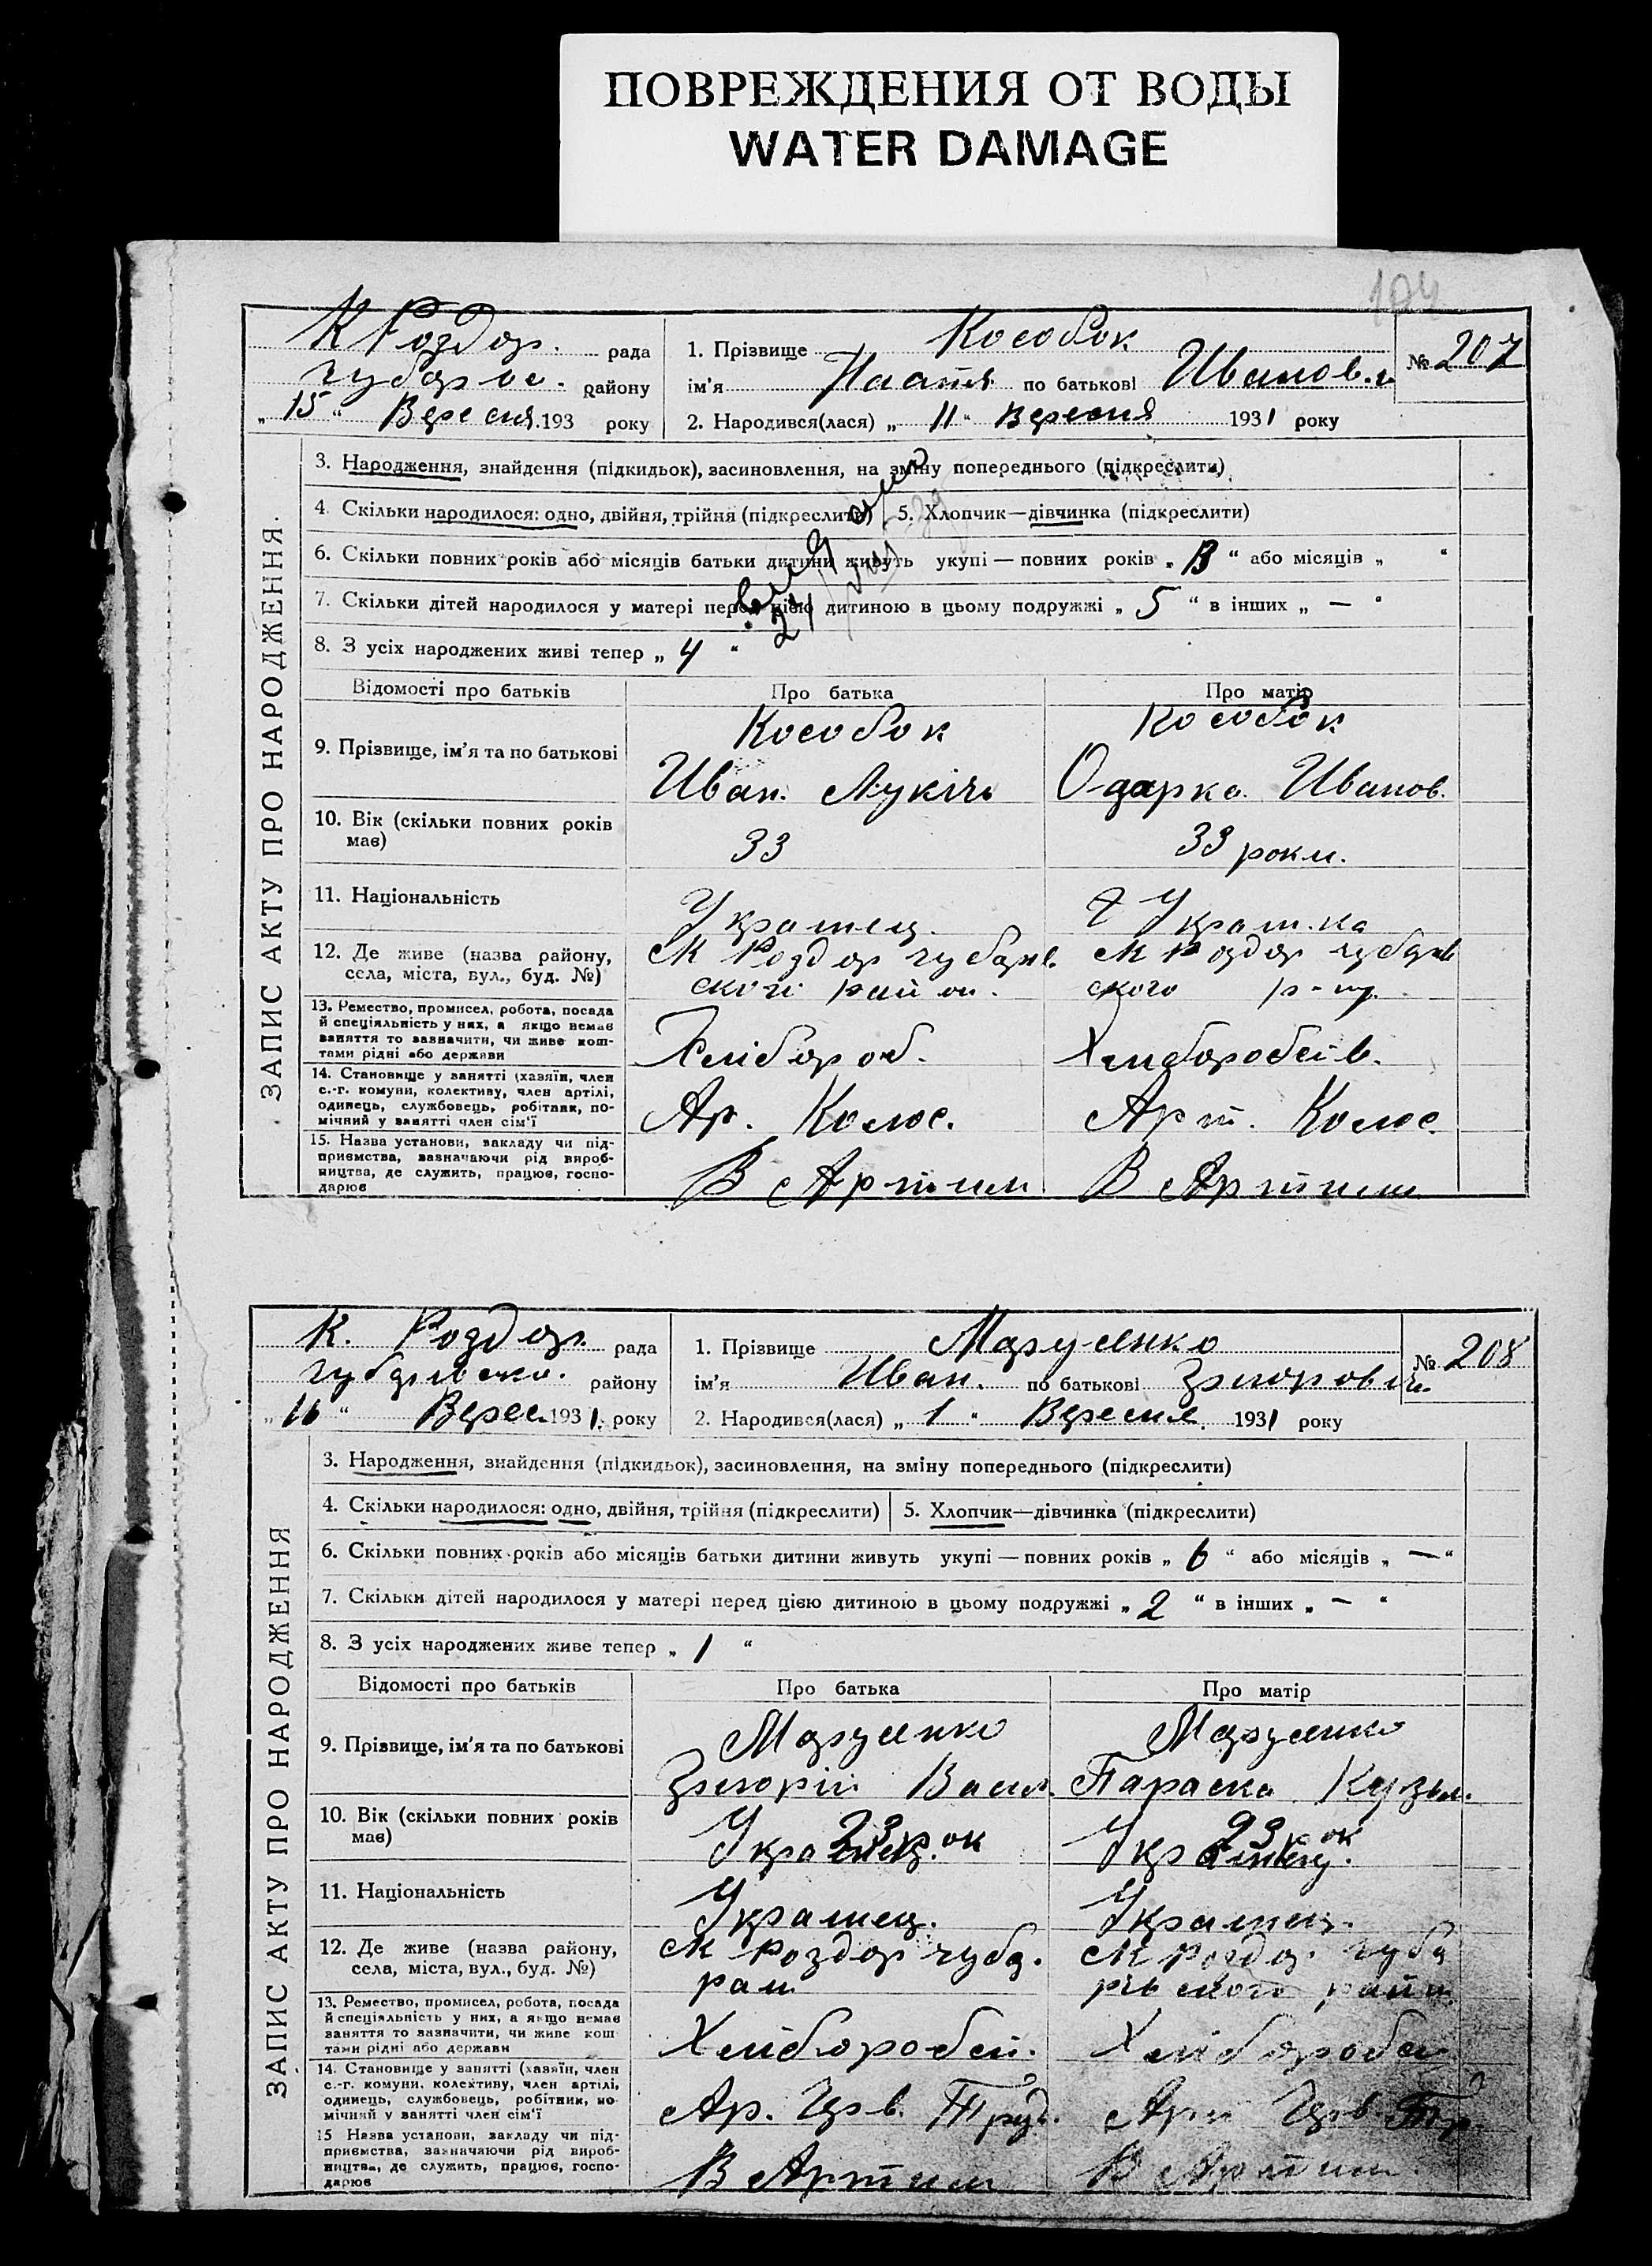 ПОВРЕЖДЕНИЯ ОТ ВОДЫ
WATER DAMAGE
104
К Роздор. рада
Чубарів. району
„ 15 “ Вересня 193 року
1. Прізвище Кособок
ім'я Настя по батькові Иванов.
2. Народився(лася) „ 11 “ Вересня 1931 року
№ 207
ЗАПИС АКТУ ПРО НАРОДЖЕННЯ.
3. Народження, знайдення (підкидьок), засиновлення, на зміну попереднього (підкреслити)
4. Скільки народилося: одно, двійня, трійня (підкреслити) 5. Хлопчик—дівчинка (підкреслити)
6. Скільки повних років або місяців батьки дитини живуть укупі — повних років „ 13 “ або місяців „ “
7. Скільки дітей народилося у матері перед цією дитиною в цьому подружжі „ 5 “ в інших „ — “
8. З усіх народжених живі тепер „ 4 “
Відомості про батьків Про батька Про матір
9. Прізвище, ім'я та по батькові
Кособок Кособок
Иван. Лукічь Одарка Иванов.
10. Вік (скільки повних років має)
33 33 роки.
11. Національність
Украінец. Украінка
12. Де живе (назва району, села, міста, вул., буд. №)
К Роздор Чубарів. К Роздор Чубарів
ского район. ского р-ну.
13. Ремество, промисел, робота, посада й спеціяльність у них, а якщо немає заняття то зазначити, чи живе коштами рідні або держави
Хлібороб. Хліборобств.
14. Становище у занятті (хазяїн, член с.-г. комуни, колективу, член артілі, одинець, службовець, робітник, помічний у занятті член сім'ї
Ар. Колос. Арт. Колос.
15. Назва установи, закладу чи підприємства, зазначаючи рід виробництва, де служить, працює, господарює
В Артили В Артили
К. Роздор. рада
Чубарівско. району
„ 16 “ Верес. 1931. року
1. Прізвище Марусенко
ім'я Иван. по батькові Григорович.
2. Народився(лася) „ 1 “ Вересня 1931 року
№ 208
ЗАПИС АКТУ ПРО НАРОДЖЕННЯ
3. Народження, знайдення (підкидьок), засиновлення, на зміну попереднього (підкреслити)
4. Скільки народилося: одно, двійня, трійня (підкреслити) 5. Хлопчик—дівчинка (підкреслити)
6. Скільки повних років або місяців батьки дитини живуть укупі — повних років „ 6 “ або місяців „ — “
7. Скільки дітей народилося у матері перед цією дитиною в цьому подружжі „ 2 “ в інших „ — “
8. З усіх народжених живе тепер „ 1 “
Відомості про батьків Про батька Про матір
9. Прізвище, ім'я та по батькові
Марусенко Марусенко
Григорій Васил. Параска Кузьм.
10. Вік (скільки повних років має)
23 рок 23 рок
11. Національність
Украінец. Украінец.
12. Де живе (назва району, села, міста, вул., буд. №)
К Роздор Чубар. К Роздор. Чуба
рай рівского район.
13. Ремество, промисел, робота, посада й спеціяльність у них, а якщо немає заняття то зазначити, чи живе коштами рідні або держави
Хлібороб Хлібороб
14. Становище у занятті (хазяїн, член с.-г. комуни, колективу, член артілі, одинець, службовець, робітник, помічний у занятті член сім'ї
Ар. Черв. Труд. Арт Черв. Тр.
15 Назва установи, закладу чи підприємства, зазначаючи рід виробництва, де служить, працює, господарює
В Артили В Артили.